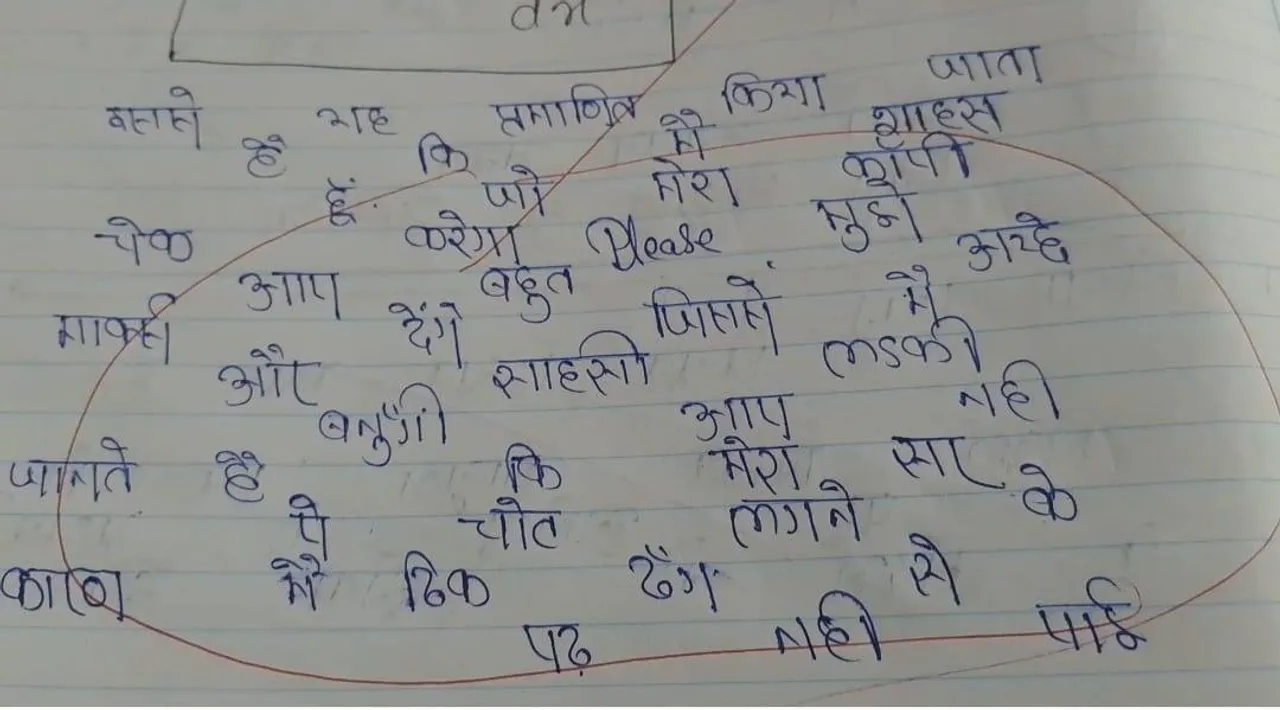 इससे यह प्रमाणित किया जाता
हैं कि मैं शाहस
हूँ. जो मेरा कॉपी
चेक करेगा Please मुझे
आप बहुत अच्छे
मार्क्स देंगे जिससे मैं
और साहसी लडकी
बनुँगी आप नही
जानते है कि मेरा सर
पे चोट लगने के
कारण मैं ठिक ढँग से
पढ़ नही पाई